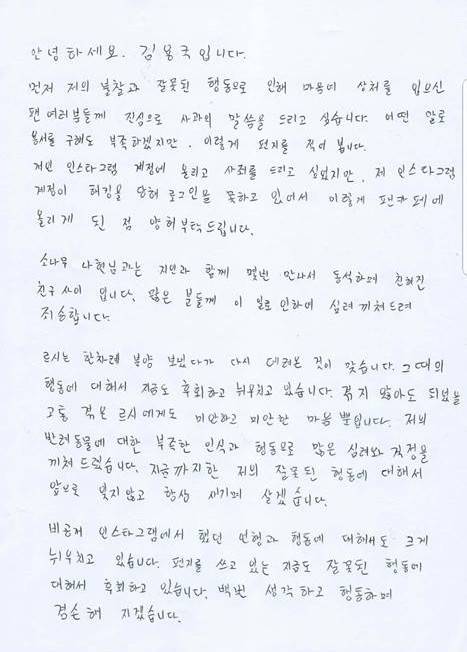 안녕하세요. 김용국입니다.
먼저 저의 불찰과 잘못된 행동으로 인해 마음에 상처를 입으신
팬 여러분들께 진심으로 사과의 말씀을 드리고 싶습니다. 어떤 말로
용서를 구해도 부족하겠지만, 이렇게 편지를 적어 봅니다.
개인 인스타그램 계정에 올리고 사죄를 드리고 싶었지만, 제 인스타그램
계정이 해킹을 당해 로그인을 못하고 있어서 이렇게 팬카페에
올리게 된 점 양해부탁드립니다.
소나무 나현님과는 지인과 함께 몇번 만나서 동석하며 친해진
친구 사이 입니다. 많은 분들께 이 일로 인하여 심려 끼쳐드려
죄송합니다.
르시는 한차례 분양 보냈다가 다시 데려온 것이 맞습니다. 그때의
행동에 대해서 지금도 후회하고 뉘우치고 있습니다. 겪지 않아도 되었을
고통 겪은 르시에게도 미안하고 미안한 마음 뿐입니다. 저의
반려동물에 대한 부족한 인식과 행동으로 많은 심려와 걱정을
끼쳐 드렸습니다. 지금까지한 저의 잘못된 행동에 대해서
앞으로 잊지않고 항상 새기며 살겠습니다.
비공개 인스타그램에서 했던 언행과 행동에 대해서도 크게
뉘우치고 있습니다. 편지를 쓰고 있는 지금도 잘못된 행동에
대해서 후회하고 있습니다. 백번 생각하고 행동하며
겸손해 지겠습니다.